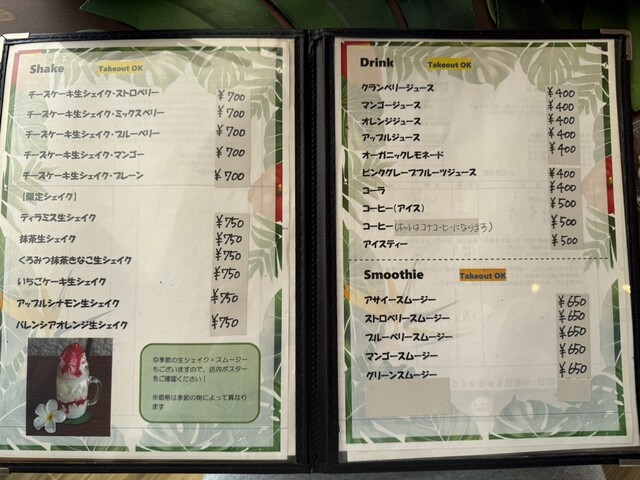 Shake Takeout OK
チーズケーキ生シェイク・ストロベリー ¥700
チーズケーキ生シェイク・ミックスベリー ¥700
チーズケーキ生シェイク・ブルーベリー ¥700
チーズケーキ生シェイク・マンゴー ¥700
チーズケーキ生シェイク・プレーン ¥700
[限定シェイク]
ティラミス生シェイク ¥750
抹茶生シェイク ¥750
くろみつ抹茶きなこ生シェイク ¥750
いちごケーキ生シェイク ¥750
アップルシナモン生シェイク ¥750
バレンシアオレンジ生シェイク ¥750
◎季節の生シェイク・スムーター
もございますので、店内ポスター
をご確認ください！
※価格は季節の物によって異なり
ます
Drink Takeout OK
クランベリージュース ¥400
マンゴージュース ¥400
オレンジジュース ¥400
アップルジュース ¥400
オーガニックレモネード ¥400
ピンクグレープフルーツジュース ¥400
コーラ ¥400
コーヒー(アイス) ¥500
コーヒー(ホットはコナコーヒーになります) ¥500
アイスティー ¥500
Smoothie Takeout OK
アサイースムージー ¥650
ストロベリースムージー ¥650
ブルーベリースムージー ¥650
マンゴースムージー ¥650
グリーンスムージー ¥650